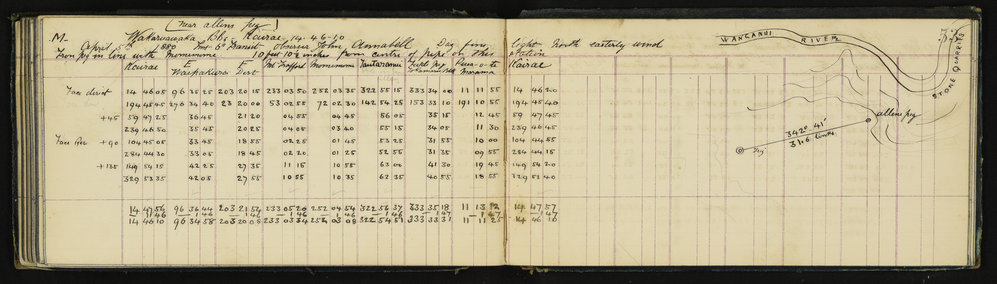 (near allens peg)
M. Wakaruawaka Bks. Koirae 14. 46-10
April 5th 1880 Inst 6" Transit Observer John Annabell Day fine, light North easterly wind
Iron peg in line with Momimomi 10 feet 10½ inches from centre of pipe on this station
Koirae E Waipakura E Dist Mt Trafford Momimomi Tautaramui Koirae
Face direct 14 46 05 96 35 25 203 20 15 233 03 50 252 03 35 322 55 15 333 34 00 11 11 55 14 46 20
194 45 45 276 34 40 23 20 00 53 02 55 72 02 30 142 54 25 153 33 10 191 10 55 194 45 40
+45 59 47 25 36 45 21 20 04 55 04 45 56 05 35 15 12 45 59 47 45
239 46 50 35 45 20 25 04 05 03 40 55 15 34 05 11 30 239 46 45
Face Rev +90 104 45 05 33 45 18 55 02 25 01 45 53 25 31 55 10 00 104 44 55
284 44 30 33 05 18 45 02 20 01 25 52 55 31 35 09 55 284 44 15
+135 149 54 15 42 25 27 35 11 15 10 55 63 00 41 30 19 45 149 54 20
329 53 35 42 05 27 55 10 55 10 35 62 35 40 55 18 55 329 53 40
14 47 56 96 36 44 203 21 54 233 05 20 252 04 54 322 56 37 333 35 18 11 13 12 14 47 57
1 46 1 46 1 46 1 46 1 46 1 46 1 47 1 47 1 47
14 46 10 96 34 58 203 20 08 233 03 34 252 03 08 322 54 51 333 33 31 11 11 25 14 46 10
33
WANGANUI RIVER
STONE QUARRIES
allens peg
342° 41'
31.6 links
Trig